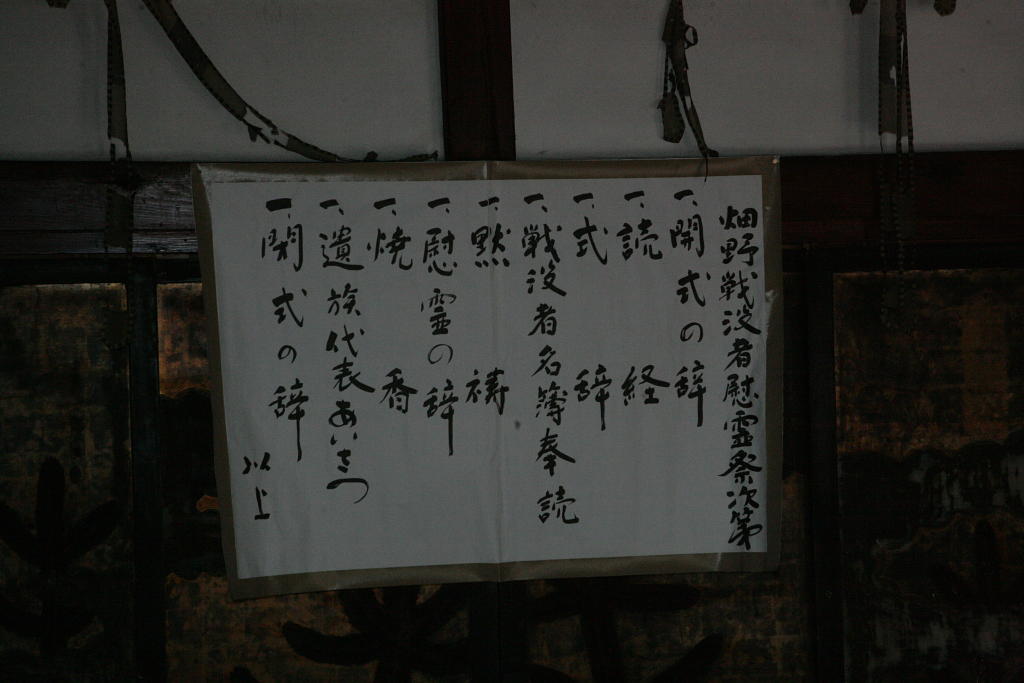 畑野戦没者慰霊祭次第
一、開式の辞
一、読経
一、式辞
一、戦没者名簿奉読
一、黙祷
一、慰霊の辞
一、焼香
一、遺族代表あいさつ
一、閉式の辞
以上